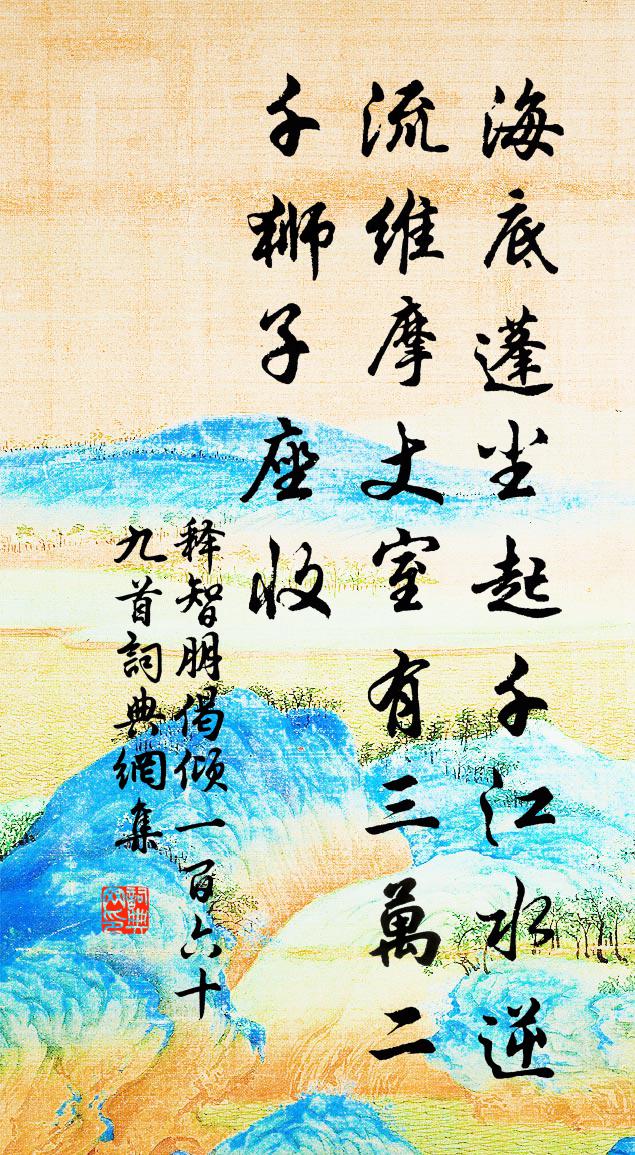 海底蓬尘起千江水逆
流维摩丈室有三萬二
千狮子座收
释智朋偈倾一百六十
九首詞典網集